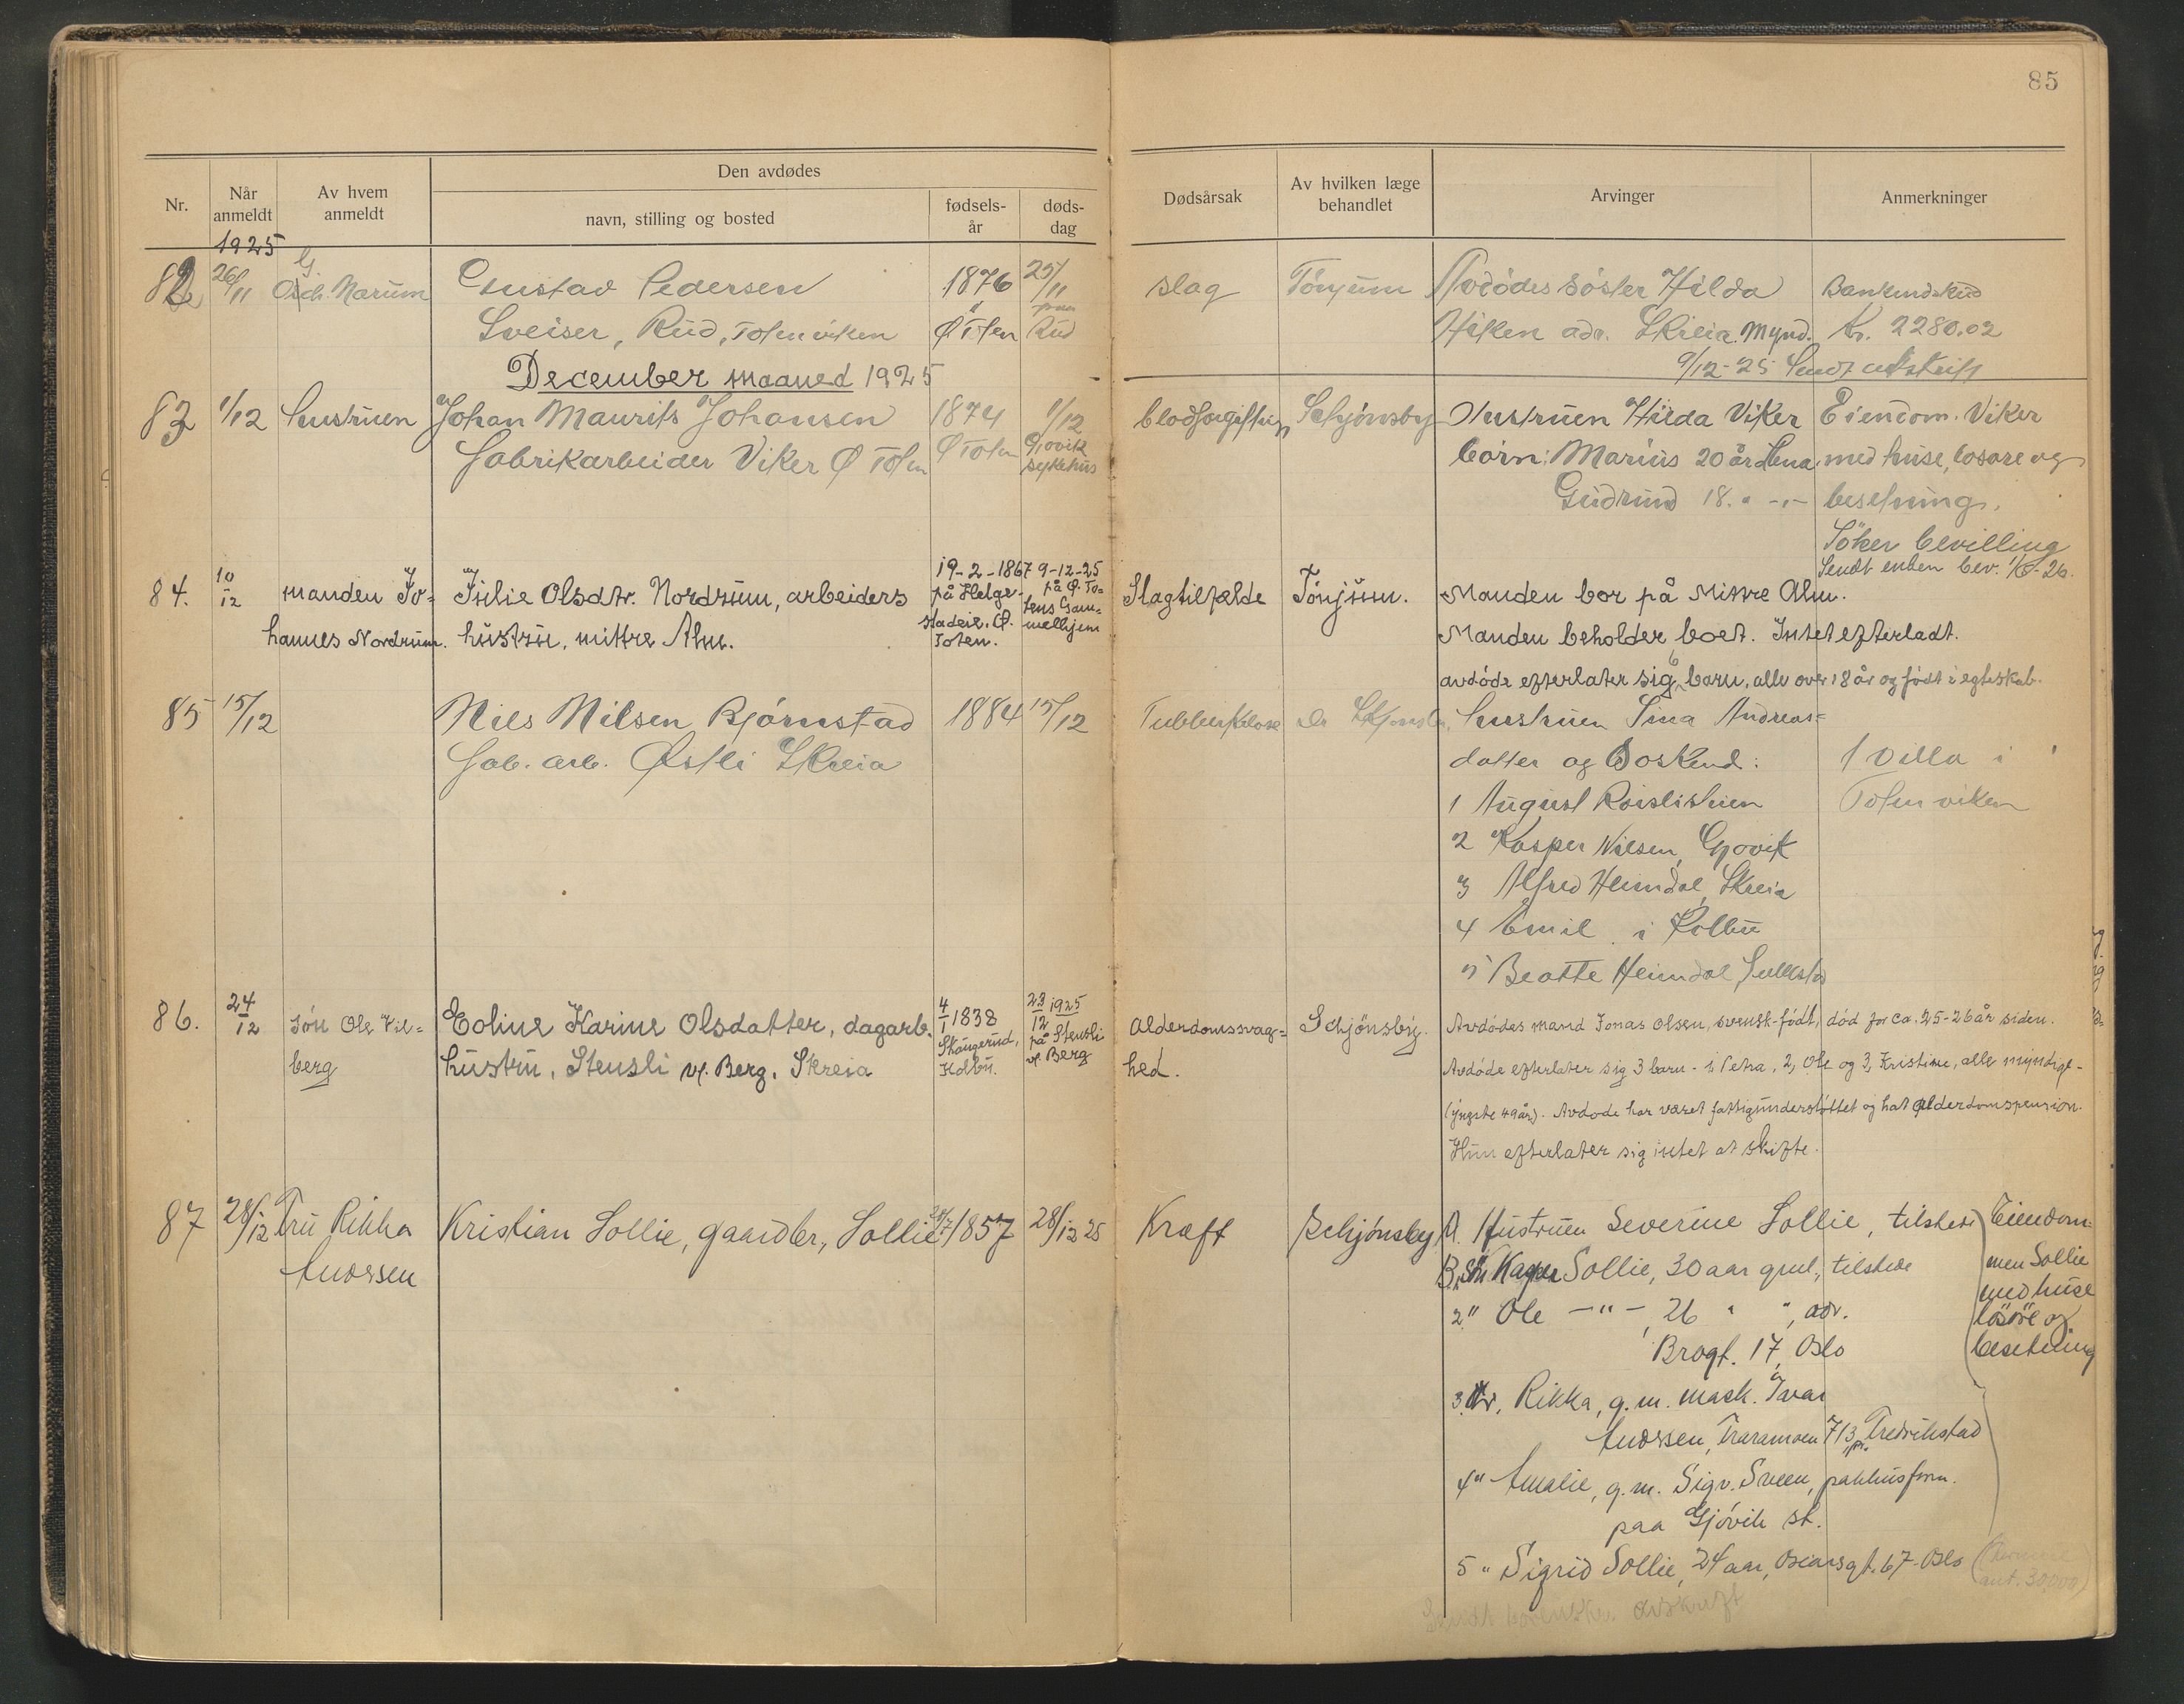 85
Den avdødes
Nr.
Når anmeldt
Av hvem anmeldt
navn, stilling og bosted
fødsels-år
døds-dag
Dødsårsak
Av hvilken læge behandlet
Arvinger
Anmerkninger
1925
82 26/11 G. Narum Gustav Pedersen 1876 25/11 slag Tönjum Avdödes söster Hilda
Sveiser, Rud, Totenviken Ø Toten paa Rud adr. Skreia. Mynd. Kr. 2280.02
9/12-25 Sendt utskrift
December maaned 1925
83 1/12 hustruen Johan Maurits Johansen 1874 1/12 blodforgiftning Schjønsby Hustruen Hilda Viker Eiendom. Viker
fabrikarbeider Viker Ø Toten Ø Toten Gjøvik sykehus börn: Marius 20 år Lena. med huse, losöre og
Gudrund 18. " -"- besetning.
Söker bevilling
Sendt enken bev.
84. 10/12 manden Jo= Julie Olsdtr. Nordrum, arbeiders 19-2-1867 9-12-25 Slagtilfælde Tönjum. Manden bor på Mittre Alm.
hannes Nordrum. hustru, mittre Alm. på Helge-stadeie, Ø. Toten. på Ø. To=tens Gam=melhjem Manden beholder boet. Intet efterladt.
avdöde efterlater sig 6 barn, alle over 18 år og födt i egteskab.
85 15/12 Nils Nilsen Bjørnstad 1884 15/12 Tuberkulose Dr hustruen Sina Andreas=
fab. arb. Østli Skreia datter og Soskend: 1 Villa i
1 August Totenviken
2 Kasper Nilsen, Gjovik
3 Alfred Heimdal, Skreia
4 Emil i Kolbu
5 Beatte Heimdal
86. 24/12 sön Ole Vil= Eoline Karine Olsdatter, dagarb. 4/1 1838 23/12 1925 Alderdomssvag= Schjönsby. Avdödes mand Jonas Olsen, svensk-födt, död for ca. 25-26 år siden.
berg hustru, Stensli v/. Berg, Skreia Skångerud, Kolbu. på Stensli v/. Berg hed. Avdöde efterlater sig 3 barn - 1, Petra, 2, Ole og 3, Kristine, alle myndige -
(yngste 49 år). Avdøde har været fattigunderstöttet og hat alderdomspension.
Hun efterlater sig intet at skifte.
87 28/12 Fru Rikka Kristian Sollie, gaardbr., Sollie 1857 28/12 25 Kræft Schjønsby A. Hustruen Severine Sollie, tilstede Eiendom=
Andersen B. 1, Sön Kasper Sollie, 30 aar gml, tilstede men Sollie
2 " Ole -"-, 26 " ", adr. med huse
Brogt. 17, Oslo lösöre og besetning
3. Dtr, Rikka, g.m. mask. Ivar
Andersen, Traramoen 713 pr. Fredrikstad
4 " Amalie, g.m. Sigv. Sveen, pakhusform.
paa Gjövik st.
5 " Sigrid Sollie, 24 aar, Oscarsgt. 67 - Oslo
ant. 30,000)
Sendt avskrift